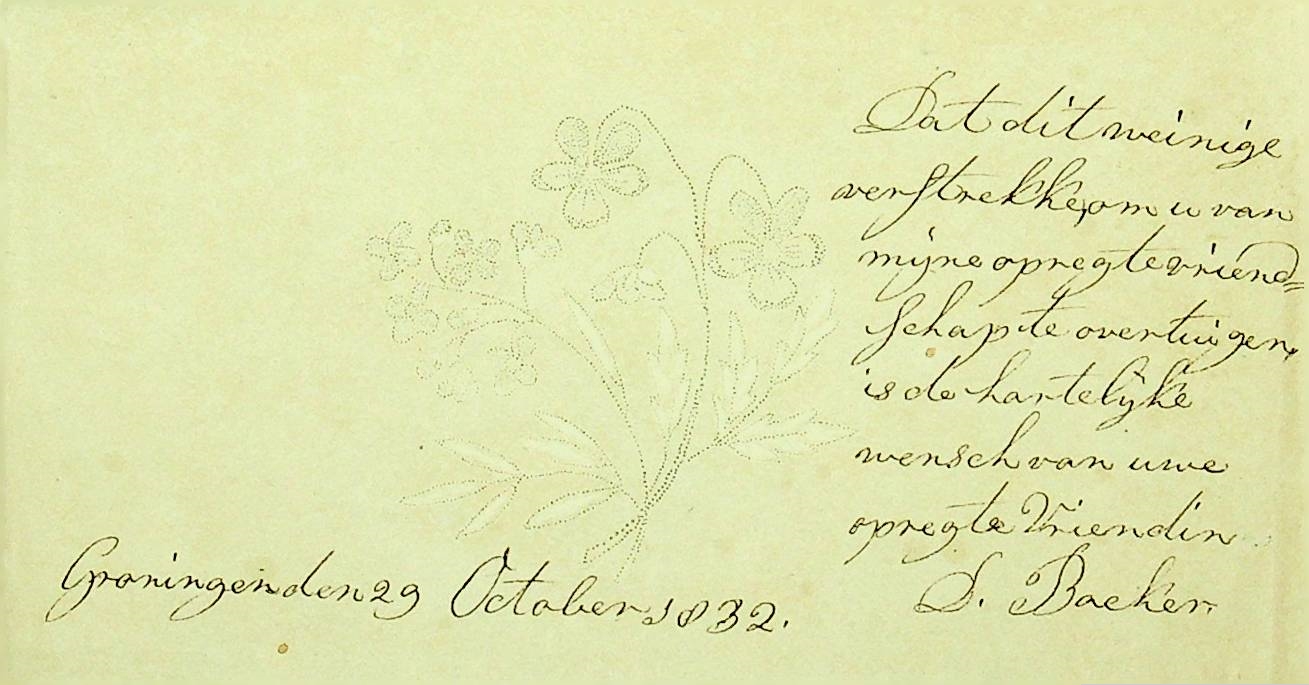 Dat dit weinige
verstrekke, om u van
mijne opregte vriend=
schap te overtuigen,
is de hartelijke
wensch van uwe
opregte Vriendin
S. Backer.
Groningen den 29 October 1832.